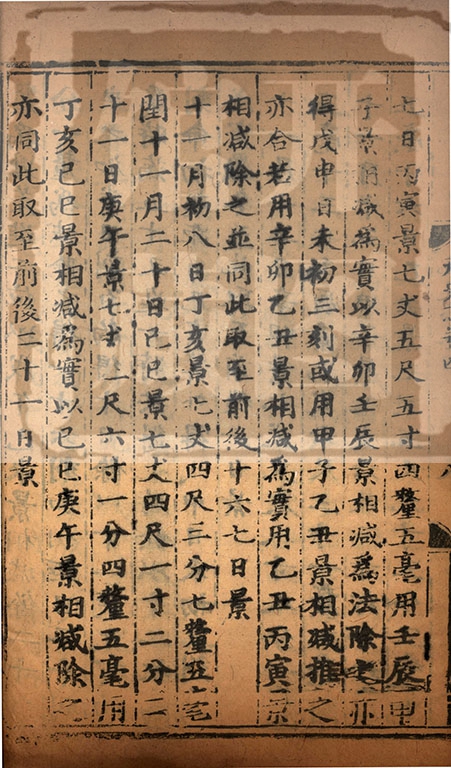 七日丙寅景七丈五尺五寸四釐五毫用壬辰甲
子景相減爲實以辛卯壬辰景相減爲法除之亦
得戊申日未初三刻或用甲子乙丑景相減推之
亦合若用辛卯乙丑景相減爲實用乙丑丙寅景
相减除之並同此取至前後十六七日景
十一月初八日丁亥景七丈四尺三分七釐五毫
閏十一月二十日己巳景七丈四尺一寸二分二
十一日庚午景七丈三尺六寸一分四釐五毫用
丁亥己巳景相减爲實以己巳庚午景相减除之
亦同此取至前後二十一日景